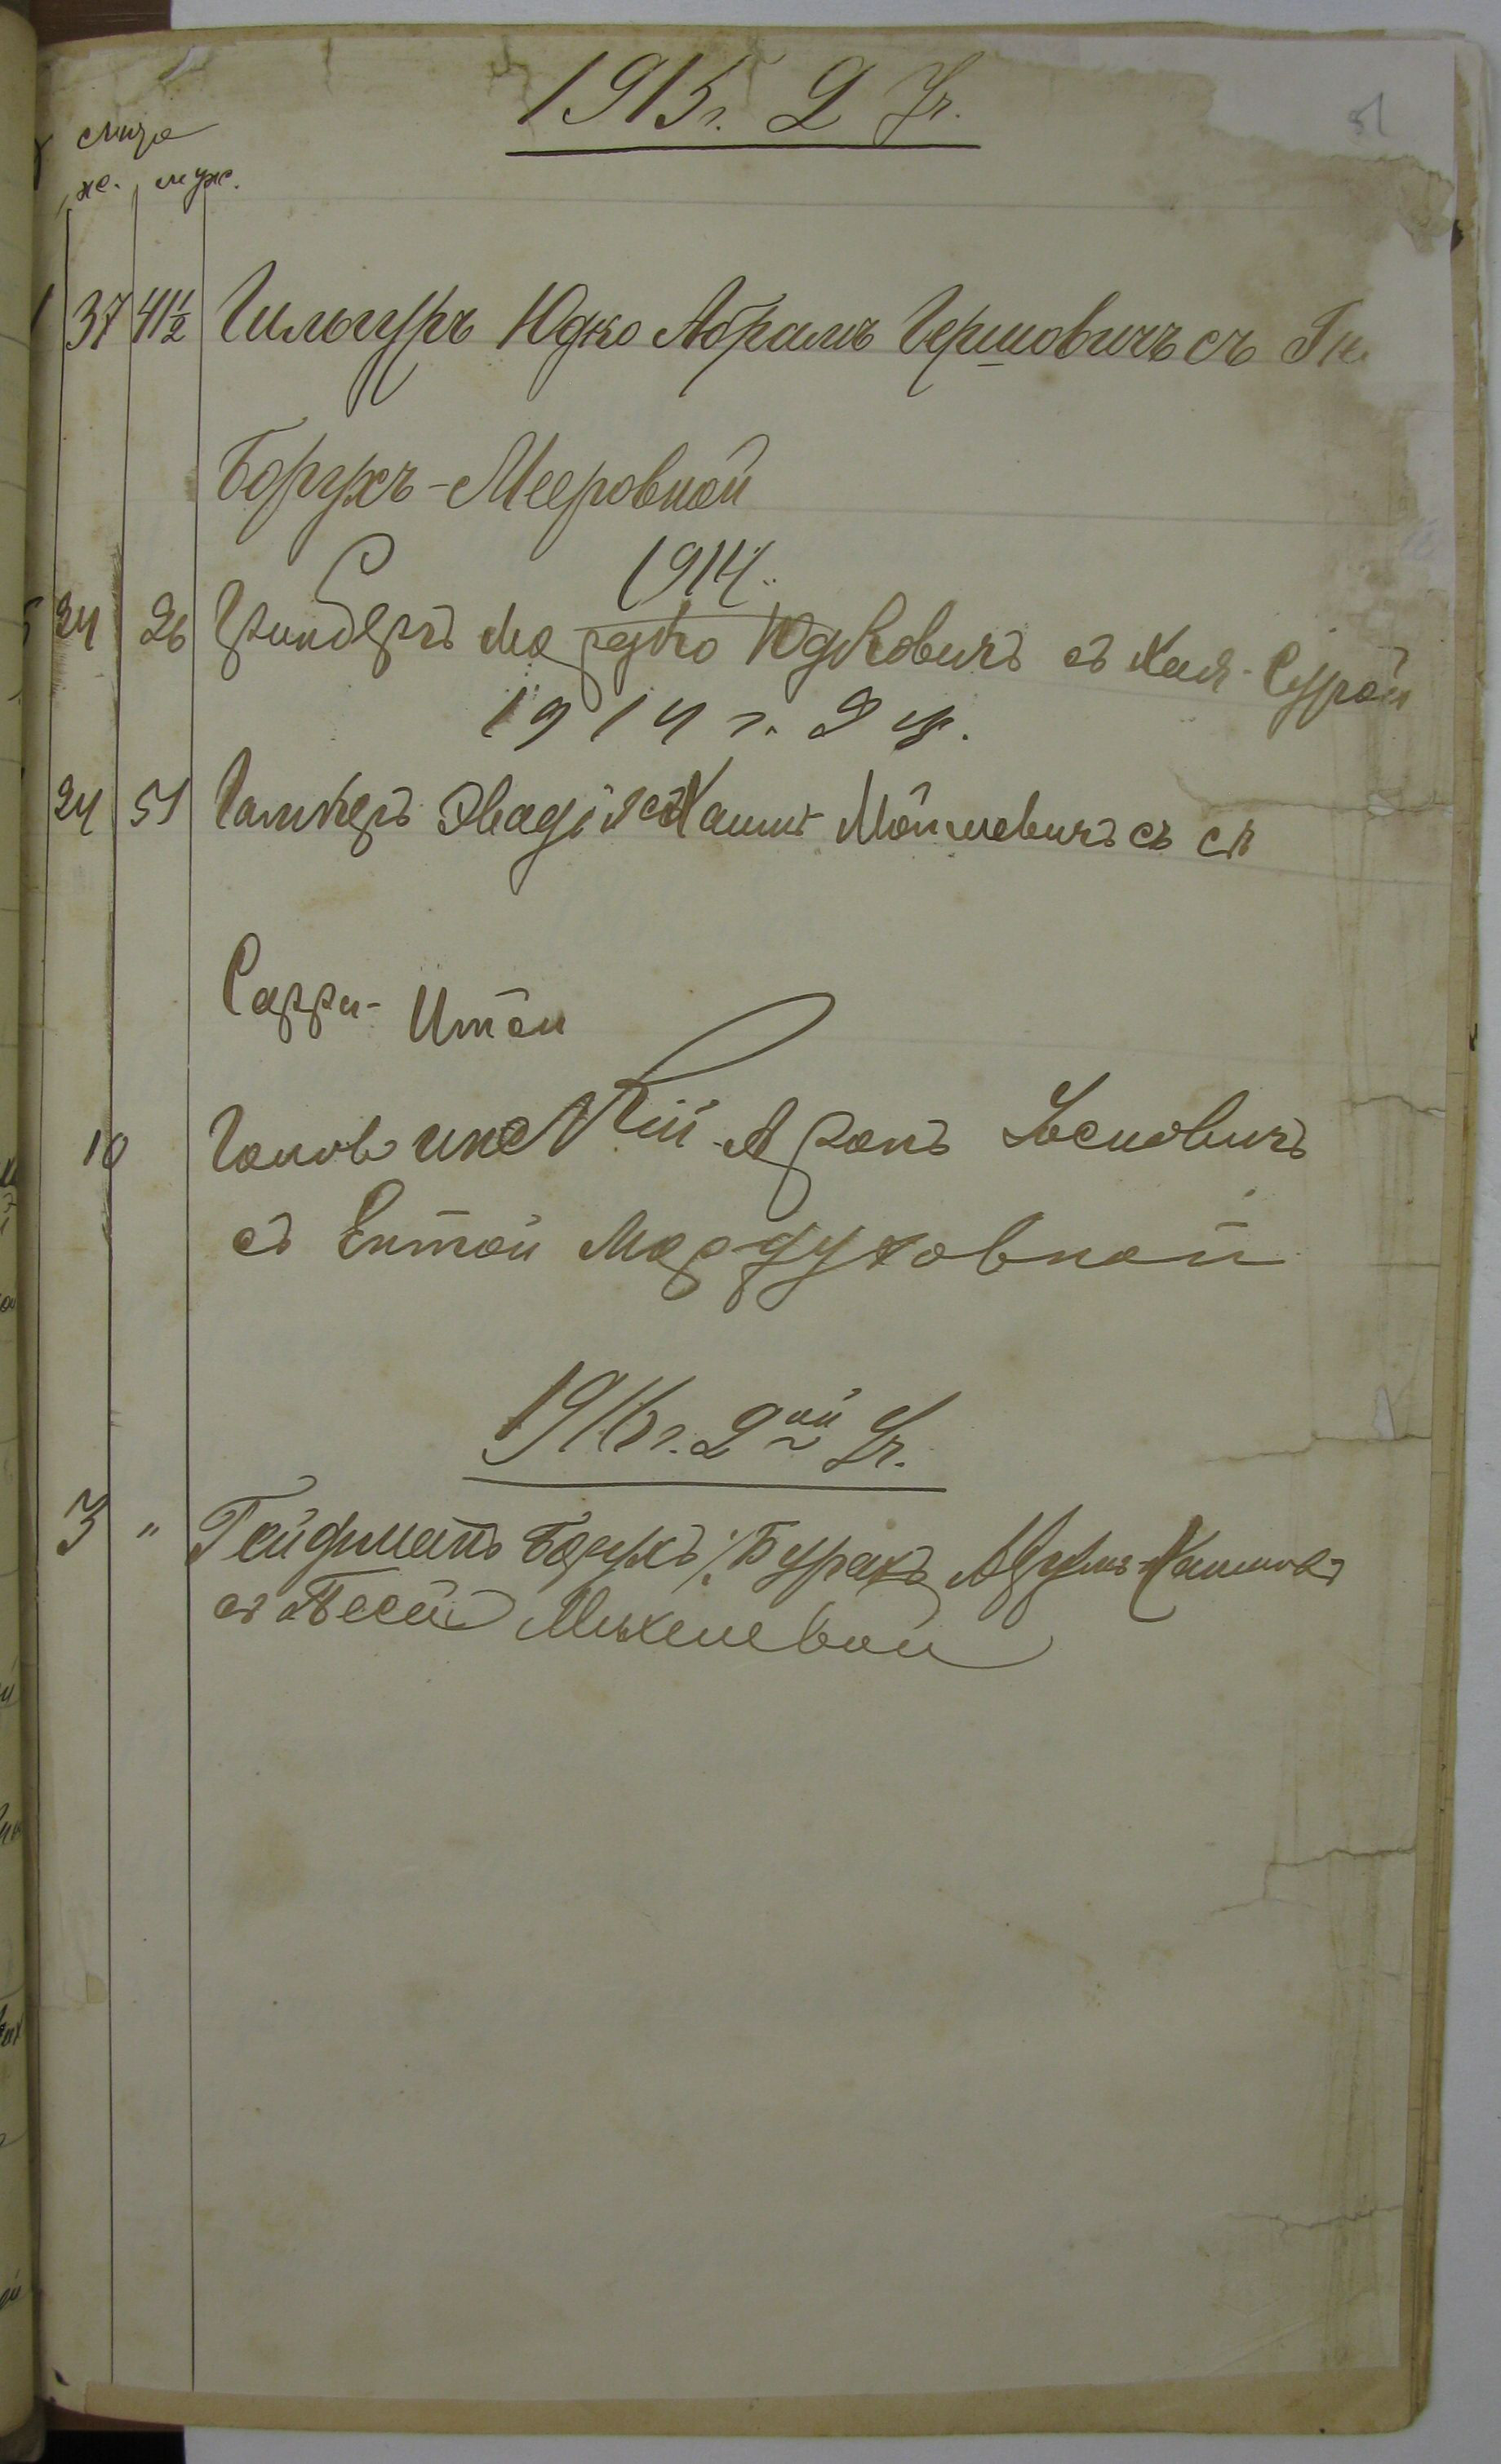 1915 г. 2 Уч.
51
ж. муж.
37 41½ Гильгуръ Юдко Абрамъ Гершовичъ съ Ги
Борухъ-Мееровной
1914.
24 26 Гринбергъ Мордко Юдковичъ съ Хая-Сурой
1914 г. 2 уч.
24 51 Овадія Хаимъ Мошковичъ съ
Сарри-Итой
10 Галовинскій Аронъ Іосиовичъ
съ Ентой Мордуховной
1916 г. 2ой Уч.
3 " Гейфманъ Борухъ /Буракъ/ Аврумъ-Хаимовъ
съ Песей Михелевой